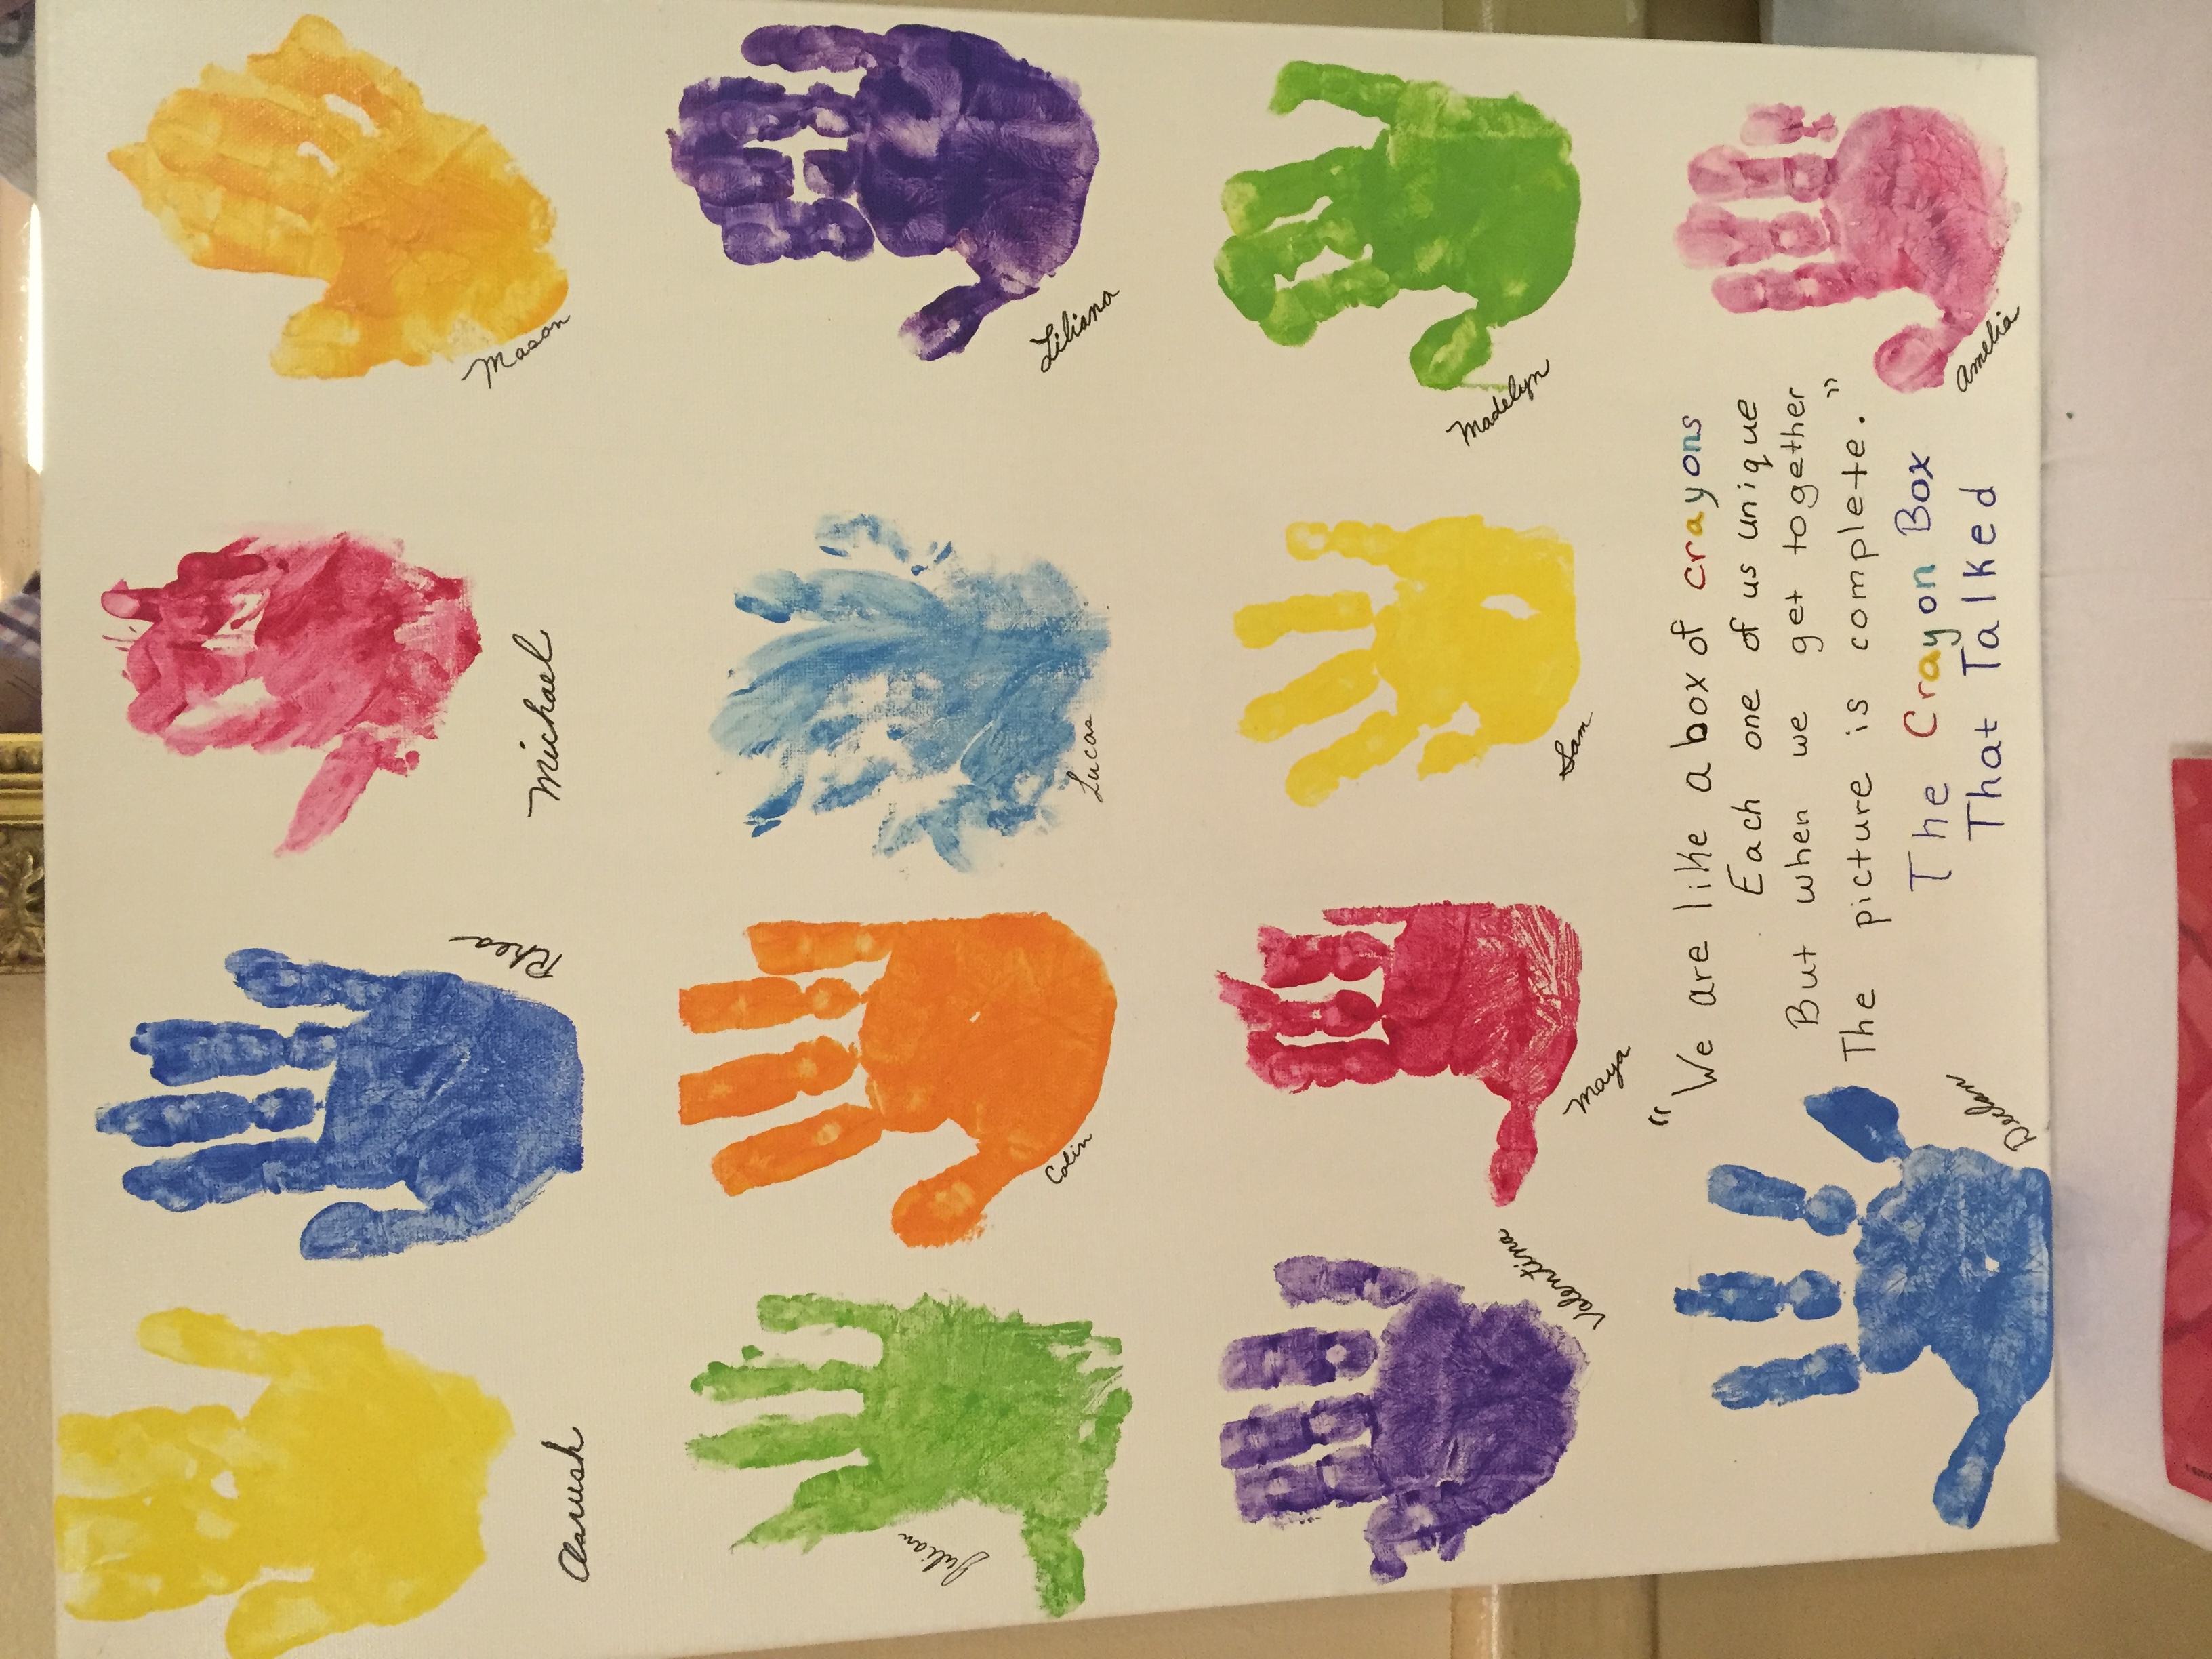 Aarush
Rhea
Michael
Mason
Julian
Colin
Lucas
Liliana
Valentina
Maya
Sam
Madelyn
"We are like a box of crayons
Each one of us unique
But when we get together
The picture is complete."
The Crayon Box
That Talked
Declan
Amelia